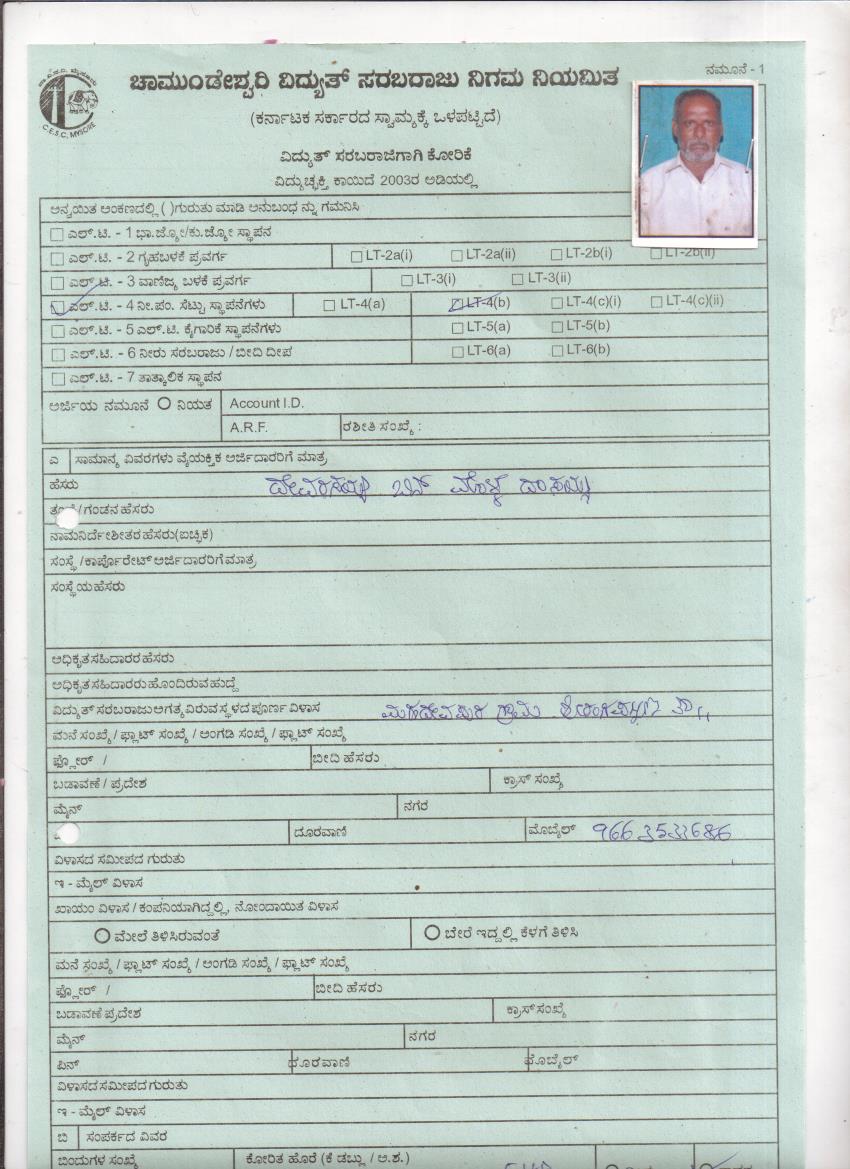 ನಮೂನೆ - 1
ಚಾಮುಂಡೇಶ್ವರಿ ವಿದ್ಯುತ್ ಸರಬರಾಜು ನಿಗಮ ನಿಯಮಿತ
C.E.S.C, MYSORE
(ಕರ್ನಾಟಕ ಸರ್ಕಾರದ ಸ್ವಾಮ್ಯಕ್ಕೆ ಒಳಪಟ್ಟಿದೆ)
ವಿದ್ಯುತ್ ಸರಬರಾಜಿಗಾಗಿ ಕೋರಿಕೆ
ವಿದ್ಯುಚ್ಛಕ್ತಿ ಕಾಯಿದೆ 2003ರ ಅಡಿಯಲ್ಲಿ
ಅನ್ವಯಿತ ಅಂಕಣದಲ್ಲಿ ( )ಗುರುತು ಮಾಡಿ ಅನುಬಂಧ ನ್ನು ಗಮನಿಸಿ
ಎಲ್.ಟಿ. - 1 ಭಾ.ಜ್ಯೋ/ಕು.ಜ್ಯೋ ಸ್ಥಾಪನ
ಎಲ್.ಟಿ. - 2 ಗೃಹಬಳಕೆ ಪ್ರವರ್ಗ LT-2a(i) LT-2a(ii) LT-2b(i) LT-2b(ii)
ಎಲ್.ಟಿ. - 3 ವಾಣಿಜ್ಯ ಬಳಕೆ ಪ್ರವರ್ಗ LT-3(i) LT-3(ii)
ಎಲ್.ಟಿ. - 4 ನೀ.ಪಂ. ಸೆಟ್ಟು ಸ್ಥಾಪನೆಗಳು LT-4(a) LT-4(b) LT-4(c)(i) LT-4(c)(ii)
ಎಲ್.ಟಿ. - 5 ಎಲ್.ಟಿ. ಕೈಗಾರಿಕೆ ಸ್ಥಾಪನೆಗಳು LT-5(a) LT-5(b)
ಎಲ್.ಟಿ. - 6 ನೀರು ಸರಬರಾಜು / ಬೀದಿ ದೀಪ LT-6(a) LT-6(b)
ಎಲ್.ಟಿ. - 7 ತಾತ್ಕಾಲಿಕ ಸ್ಥಾಪನ
ಅರ್ಜಿಯ ನಮೂನೆ ನಿಯತ Account I.D.
A.R.F. ರಶೀತಿ ಸಂಖ್ಯೆ :
ಎ ಸಾಮಾನ್ಯ ವಿವರಗಳು ವೈಯಕ್ತಿಕ ಅರ್ಜಿದಾರರಿಗೆ ಮಾತ್ರ
ಹೆಸರು
/ ಗಂಡನ ಹೆಸರು
ನಾಮನಿರ್ದೇಶಿತರ ಹೆಸರು(ಐಚ್ಛಿಕ)
ಸಂಸ್ಥೆ / ಕಾರ್ಪೊರೇಟ್ ಅರ್ಜಿದಾರರಿಗೆ ಮಾತ್ರ
ಸಂಸ್ಥೆಯ ಹೆಸರು
ಅಧಿಕೃತ ಸಹಿದಾರರ ಹೆಸರು
ಅಧಿಕೃತ ಸಹಿದಾರರು ಹೊಂದಿರುವ ಹುದ್ದೆ
ವಿದ್ಯುತ್ ಸರಬರಾಜು ಅಗತ್ಯವಿರುವ ಸ್ಥಳದ ಪೂರ್ಣ ವಿಳಾಸ ಮಹದೇವಪುರ ಗ್ರಾಮ
ಮನೆ ಸಂಖ್ಯೆ / ಫ್ಲಾಟ್ ಸಂಖ್ಯೆ / ಅಂಗಡಿ ಸಂಖ್ಯೆ / ಫ್ಲಾಟ್ ಸಂಖ್ಯೆ
ಫ್ಲೋರ್ / ಬೀದಿ ಹೆಸರು
ಬಡಾವಣೆ / ಪ್ರದೇಶ ಕ್ರಾಸ್ ಸಂಖ್ಯೆ
ಮೈನ್ ನಗರ
ದೂರವಾಣಿ ಮೊಬೈಲ್ 9663533686
ವಿಳಾಸದ ಸಮೀಪದ ಗುರುತು
ಇ - ಮೈಲ್ ವಿಳಾಸ
ಖಾಯಂ ವಿಳಾಸ / ಕಂಪನಿಯಾಗಿದ್ದಲ್ಲಿ, ನೋಂದಾಯಿತ ವಿಳಾಸ
ಮೇಲೆ ತಿಳಿಸಿರುವಂತೆ ಬೇರೆ ಇದ್ದಲ್ಲಿ ಕೆಳಗೆ ತಿಳಿಸಿ
ಮನೆ ಸಂಖ್ಯೆ / ಫ್ಲಾಟ್ ಸಂಖ್ಯೆ / ಅಂಗಡಿ ಸಂಖ್ಯೆ / ಫ್ಲಾಟ್ ಸಂಖ್ಯೆ
ಫ್ಲೋರ್ / ಬೀದಿ ಹೆಸರು
ಬಡಾವಣೆ ಪ್ರದೇಶ ಕ್ರಾಸ್ ಸಂಖ್ಯೆ
ಮೈನ್ ನಗರ
ಪಿನ್ ದೂರವಾಣಿ ಮೊಬೈಲ್
ವಿಳಾಸದ ಸಮೀಪದ ಗುರುತು
ಇ - ಮೈಲ್ ವಿಳಾಸ
ಬಿ ಸಂಪರ್ಕದ ವಿವರ
ಬಿಂದುಗಳ ಸಂಖ್ಯೆ ಕೋರಿತ ಹೊರೆ (ಕೆ ಡಬ್ಲು / ಅ.ಶ.)